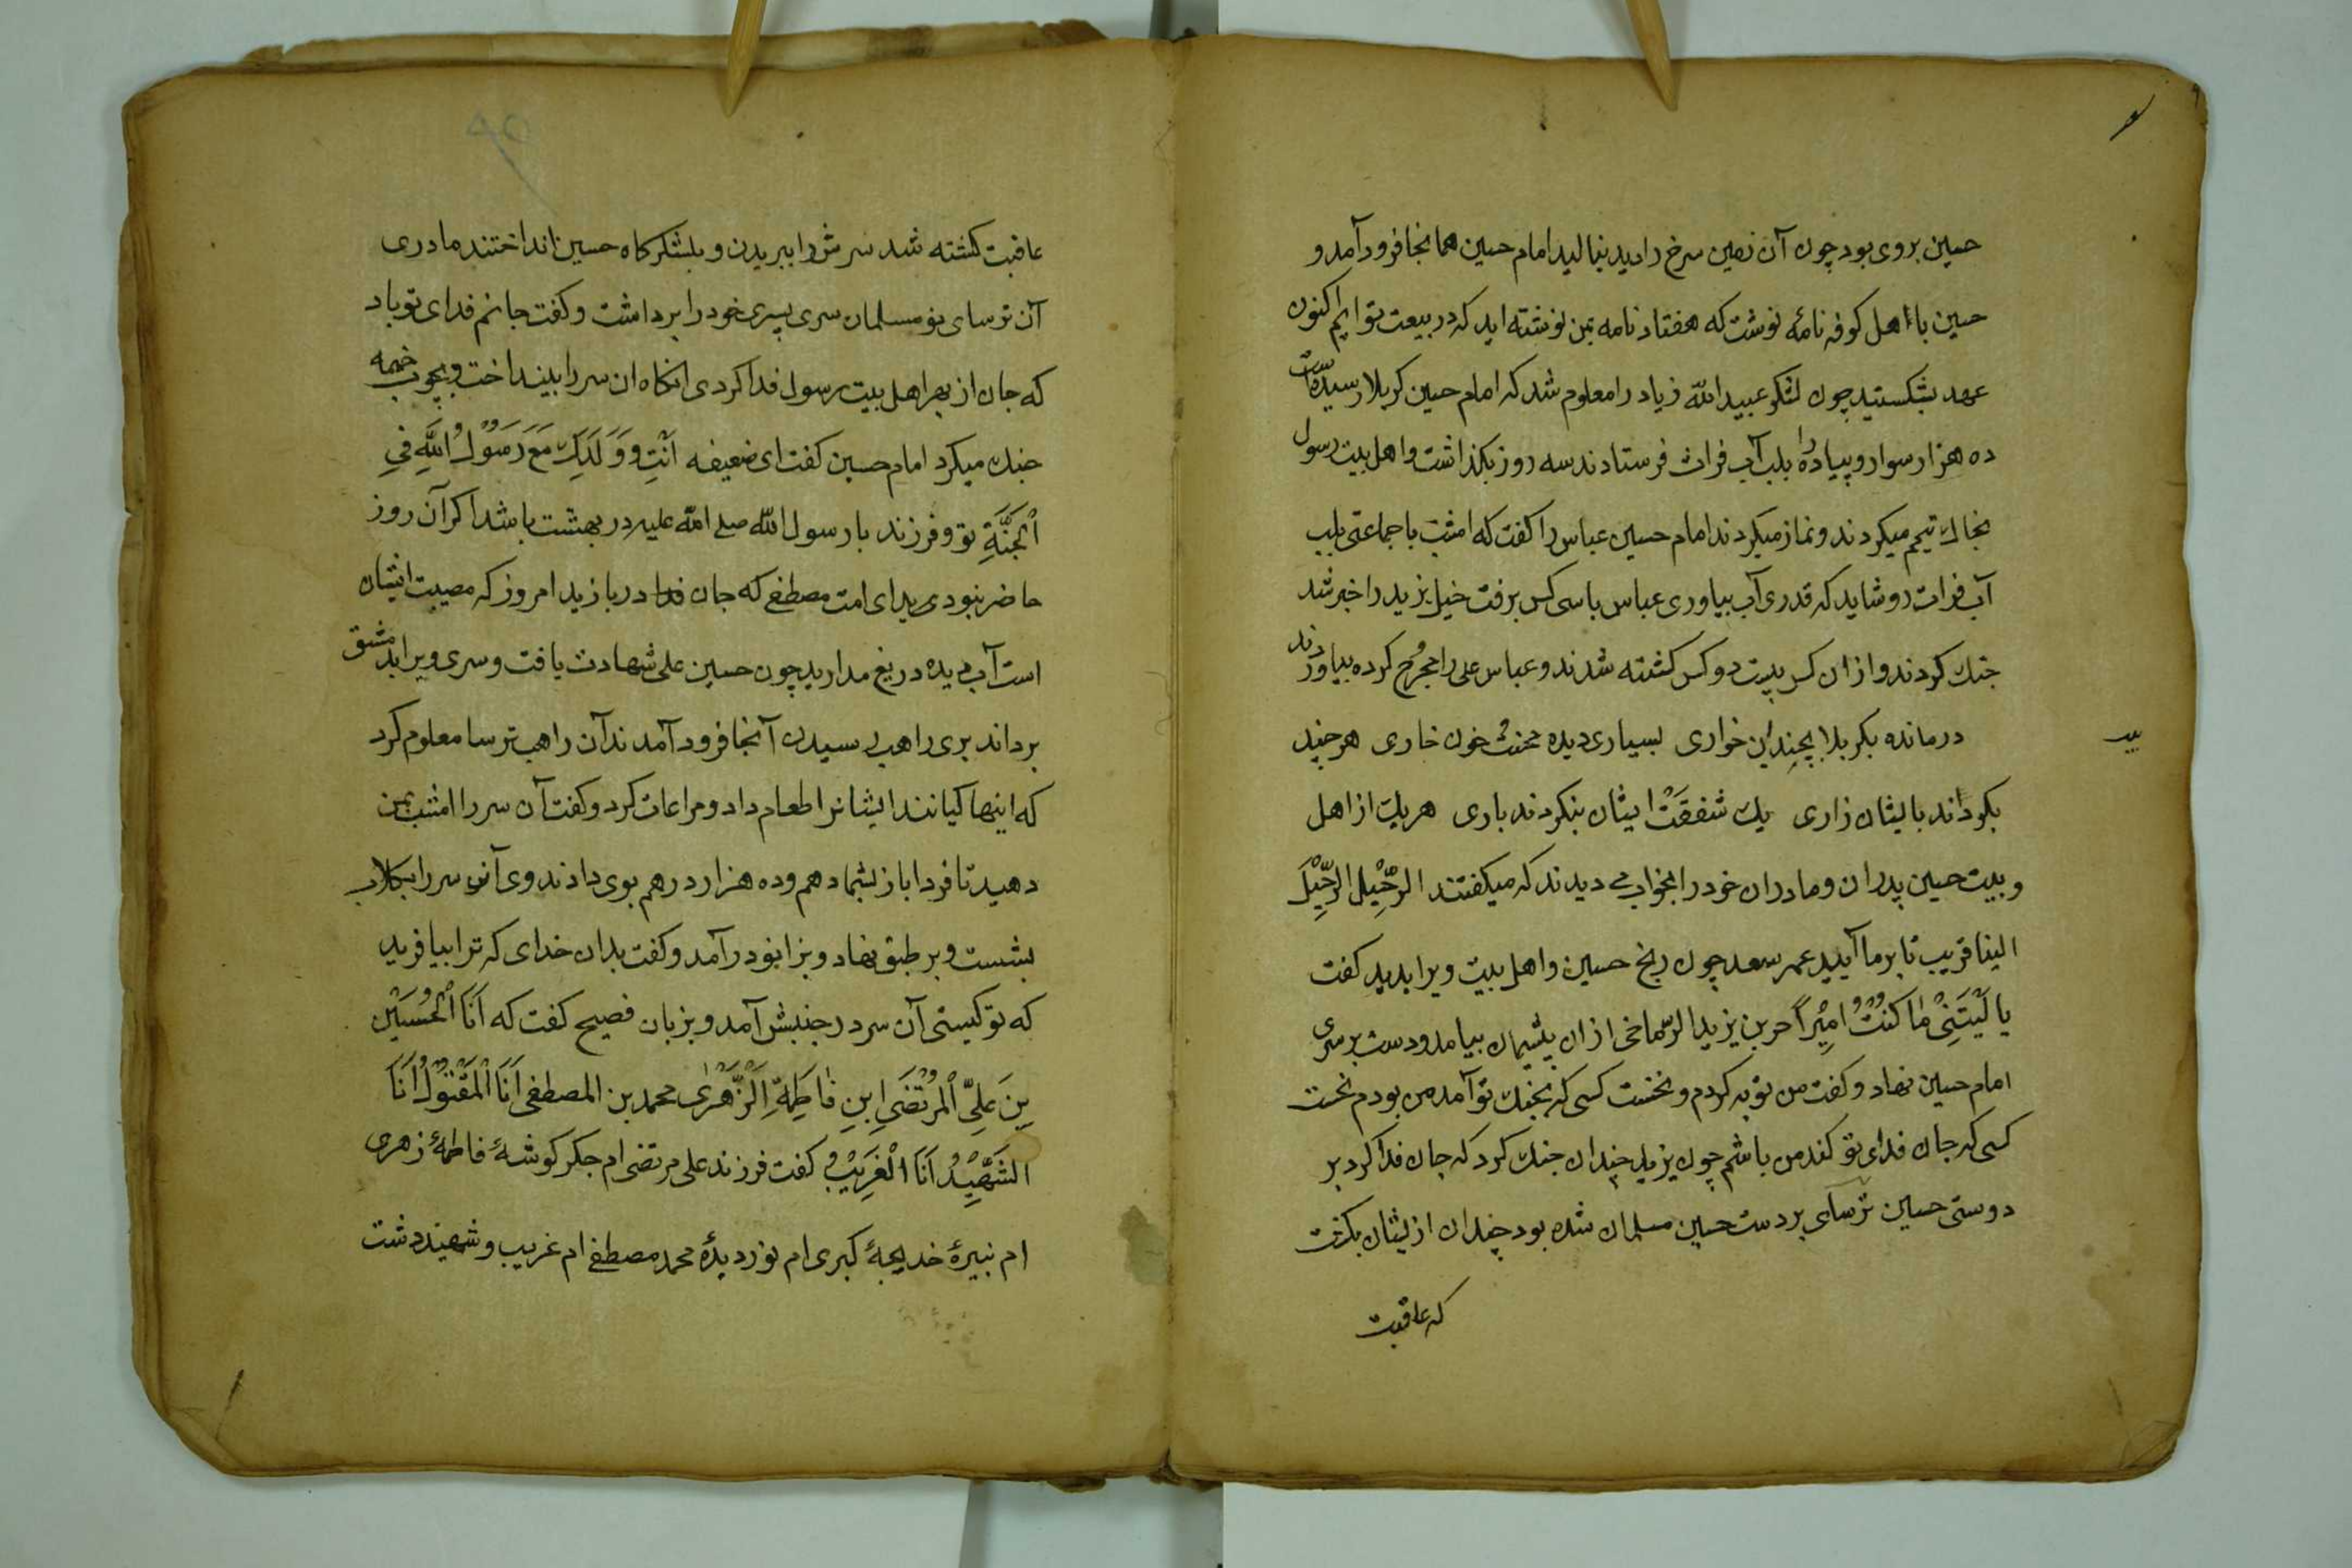 حسین بروی بود چون آن زمین سرخ را دید بنالید امام حسین همانجا فرود آمد و
حسین با اهل کوفه نامهٔ نوشت که هفتاد نامه بمن نوشته اید که در بیعت توایم اکنون
عهد بشکستید چون لشکر عبیدالله زیاد را معلوم شد که امام حسین کربلا رسیده است
ده هزار سوار و پیاده را بلب آب فرات فرستادند سه روز بکذاشت و اهل بیت رسول
بخاک تیمم میکردند و نماز میکردند امام حسین عباس را کفت که امشب با جماعتی بلب
آب فرات رو شاید که قدری آب بیاوری عباس با سی کس برفت خیل یزید را خبر شد
جنک کردند و از ان کس بیست دو کس کشته شدند و عباس علی را مجروح کرده بیاوردند
درمانده بکربلا بچندین خواری بسیاری دیده محنت خون خاری هرچند
بکرداند با ایشان زاری یک شفقت ایشان بنکردند باری هر یک از اهل
و بیت حسین پدران و مادران خود را بخواب می دیدند که میکفتند الرحیل الرحیل
الینا قریب تا بر ما آیید عمر سعد چون رنج حسین و اهل بیت ویرا بدید کفت
یا لَیْتَنِیْ مَا کُنْتُ اَمِیْراً حر بن یزید الرماخی از ان پشیمان بیامد و دست بر سری
امام حسین نهاد و کفت من توبه کردم و نخست کسی که بجنک تو آمد من بودم نخست
کسی که جان فدای تو کند من باشم چون یزید چندان جنک کرد که جان فدا کرد بر
دوستی حسین ترسای بر دست حسین مسلمان شده بود چندان از ایشان بکشت
که عاقبت
عاقبت کشته شد سرش را ببریدن و بلشکرکاه حسین انداختند مادری
آن ترسای نو مسلمان سری پسری خود را برداشت و کفت جانم فدای تو باد
که جان از بهر اهل بیت رسول فدا کردی انکاه ان سر را بینداخت و بچوب خیمه
جنک میکرد امام حسین کفت ای ضعیفه اَنْتِ وَ وَلَدَكِ مَعَ رَسُوْلُ اللّٰهِ فِی
الْجَنَّةِ تو و فرزند با رسول الله صلی الله علیه در بهشت باشد اکر آن روز
حاضر نبودی بدای امت مصطفی که جان فدا در بازید امروز که مصیبت ایشان
است آب دیده دریغ مدارید چون حسین علی شهادت یافت و سری ویرا بدمشق
برداند بری راهب رسیدن آنجا فرود آمدند آن راهب ترسا معلوم کرد
که اینها کیانند ایشانرا طعام داد و مراعات کرد و کفت آن سر را امشب بمن
دهید تا فردا باز بشما دهم و ده هزار درهم بوی دادند وی آن سر را بکلاب
بشست و بر طبق نهاد و بزانو در آمد و کفت بدان خدای که ترا بیافرید
که تو کیستی آن سر در جنبش آمد و بزبان فصیح کفت که اَنَا الْحُسَیْن
بِن عَلِیِّ الْمُرْتَضَی اِبنِ فَاطِمَةِ الزَّهْرٰی محمد بن المصطفی اَنَا الْمَقْتُوْلُ اَنَا
الشَّهِیْدُ اَنَا الْغَرِیْبُ کفت فرزند علی مرتضی ام جکر کوشهٔ فاطمهٔ زهری
ام نبیرهٔ خدیجهٔ کبری ام نور دیدهٔ محمد مصطفی ام غریب و شهید دشت